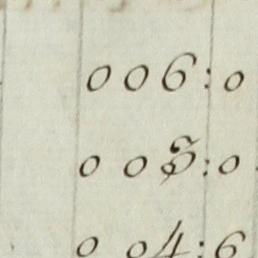 0 0 6:0
0 0 3:0
0 0 4:6